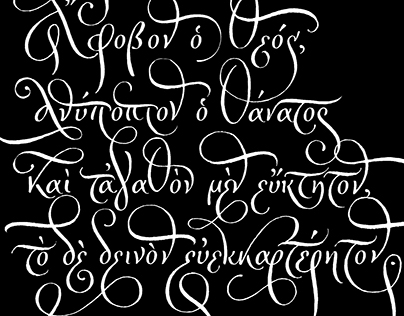 Ἄφοβον ὁ θεός,
ἀνύποπτον ὁ θάνατος
Καὶ τἀγαθὸν μὲν εὔκτητον,
τὸ δὲ δεινὸν εὐεκκαρτέρητον.